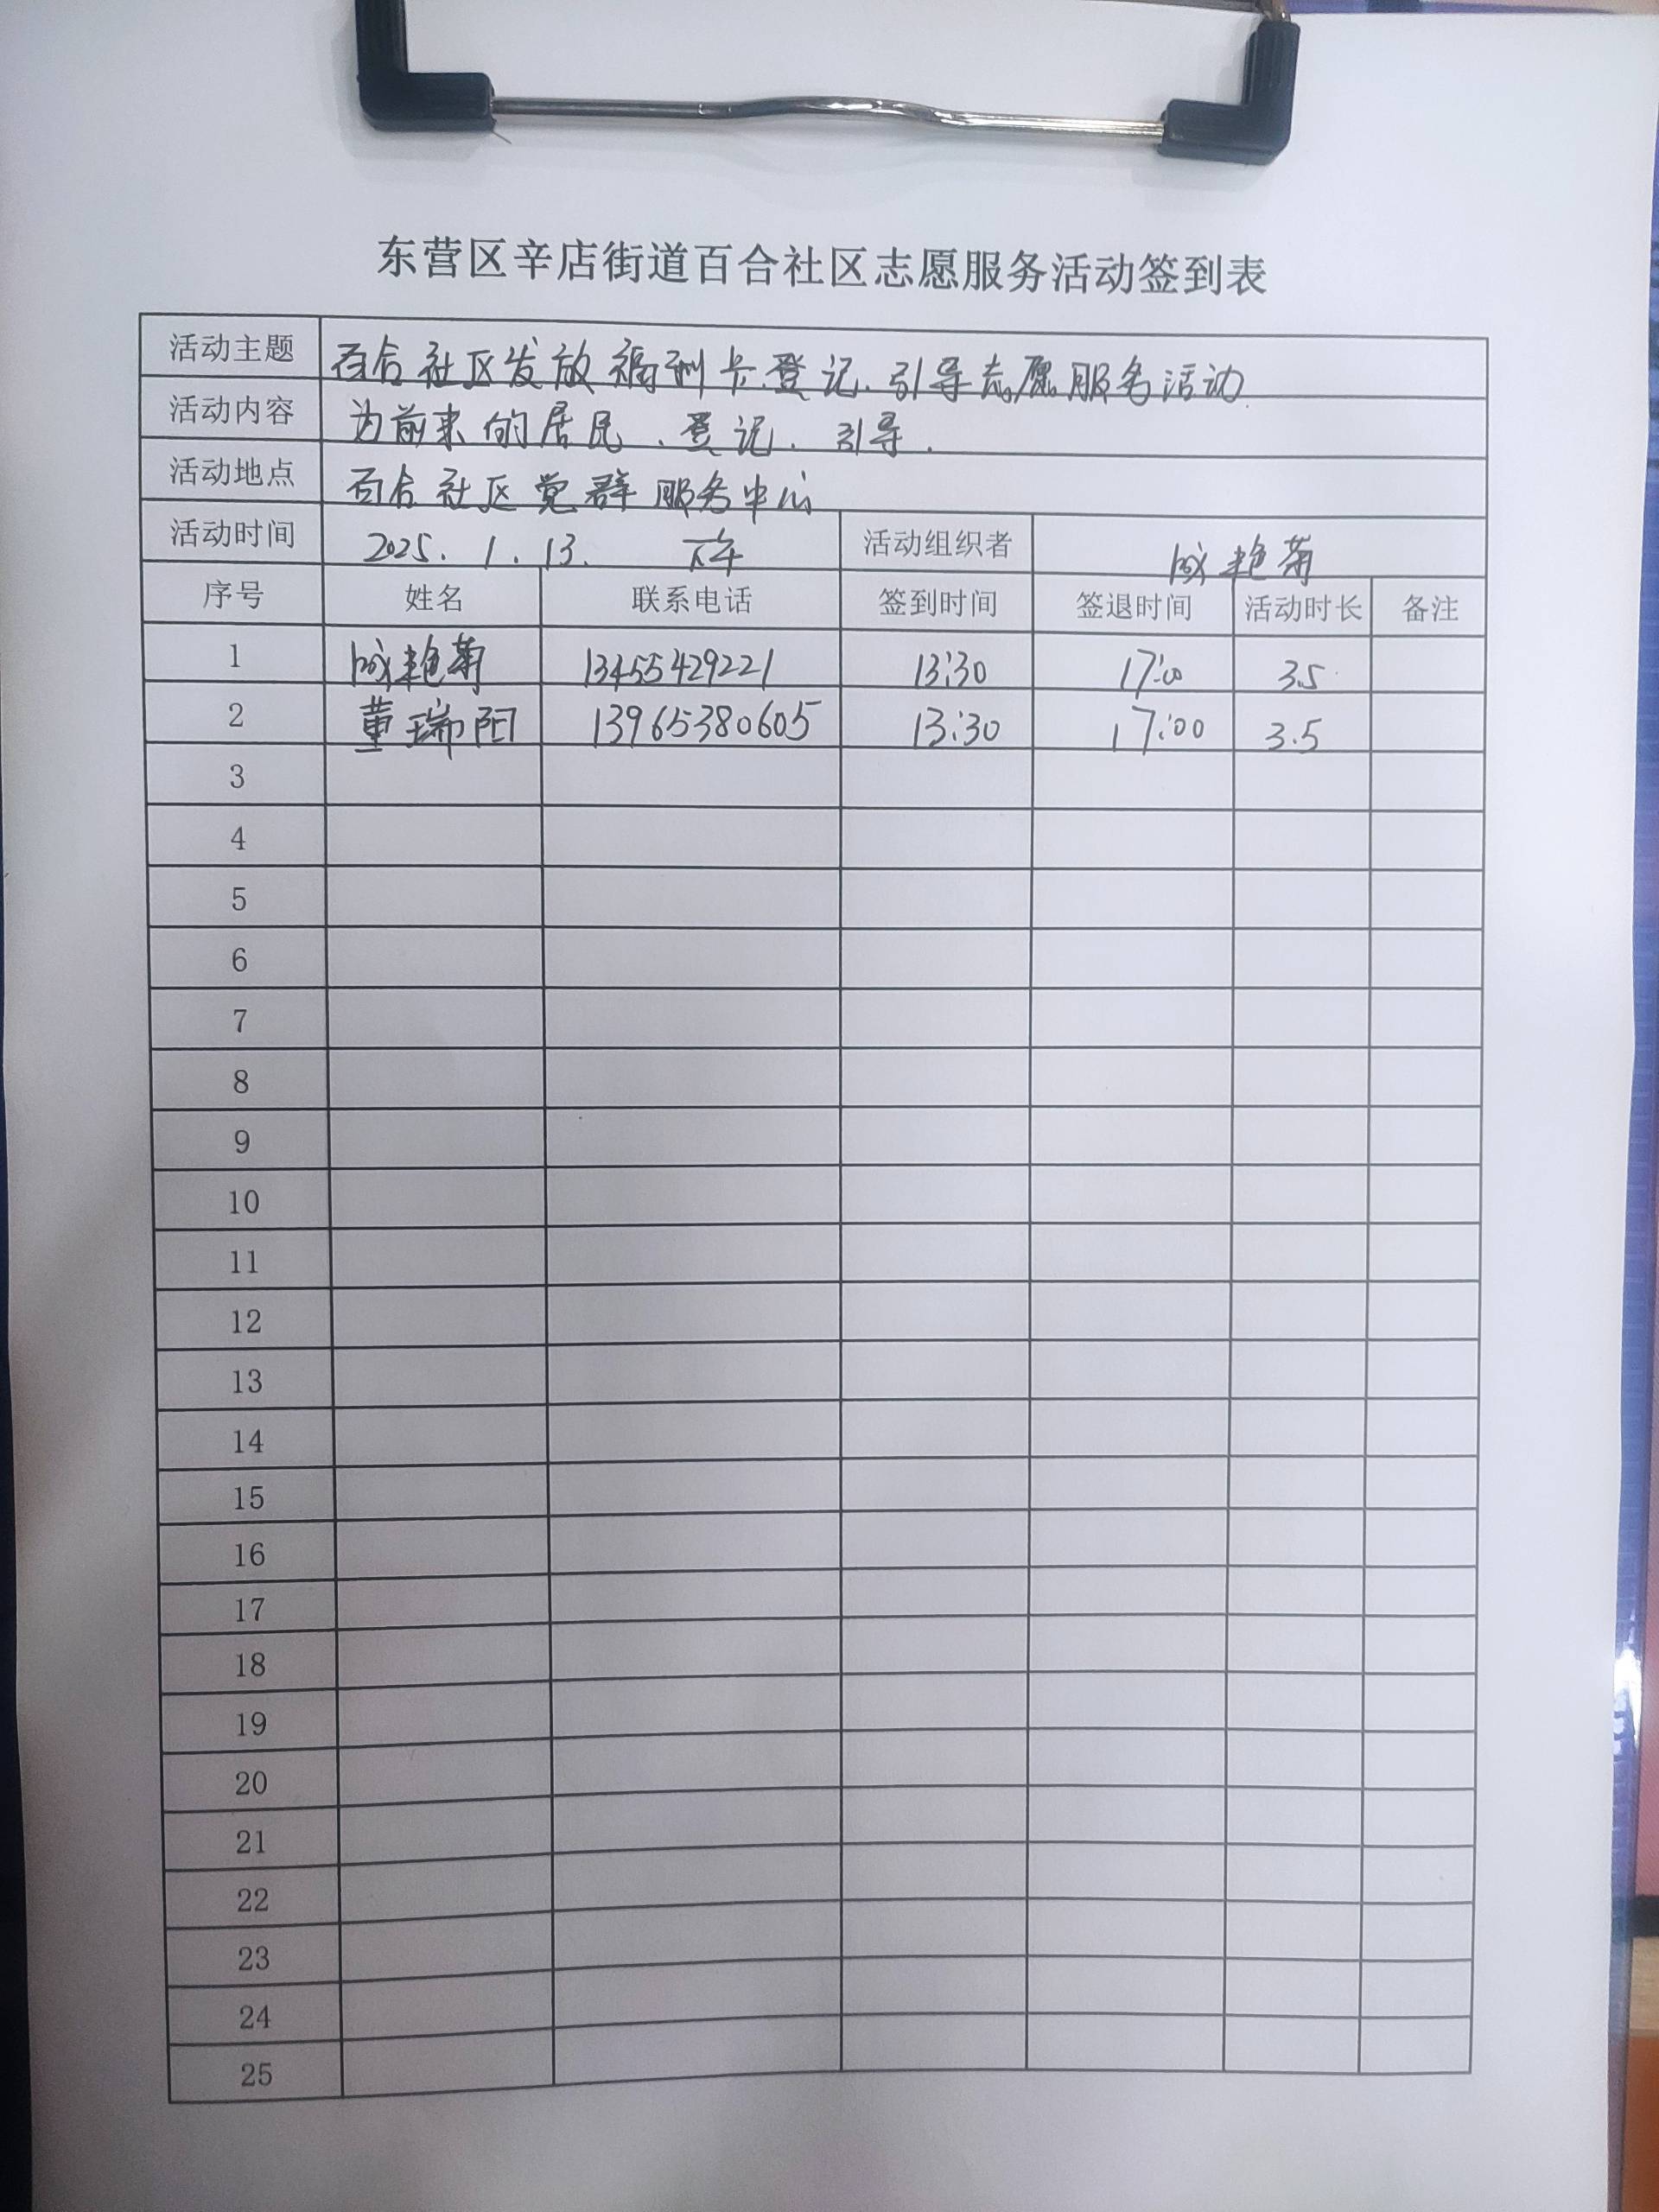 东营区辛店街道百合社区志愿服务活动签到表
活动主题 百合社区发放福利卡、登记、引导志愿服务活动.
活动内容 为前来的居民、登记、引导.
活动地点 百合社区党群服务中心
活动时间 2025.1.13. 下午 活动组织者 成艳菊
序号 姓名 联系电话 签到时间 签退时间 活动时长 备注
1 成艳菊 13455429221 13:30 17:00 3.5
2 董瑞阳 13965380605 13:30 17:00 3.5
3
4
5
6
7
8
9
10
11
12
13
14
15
16
17
18
19
20
21
22
23
24
25